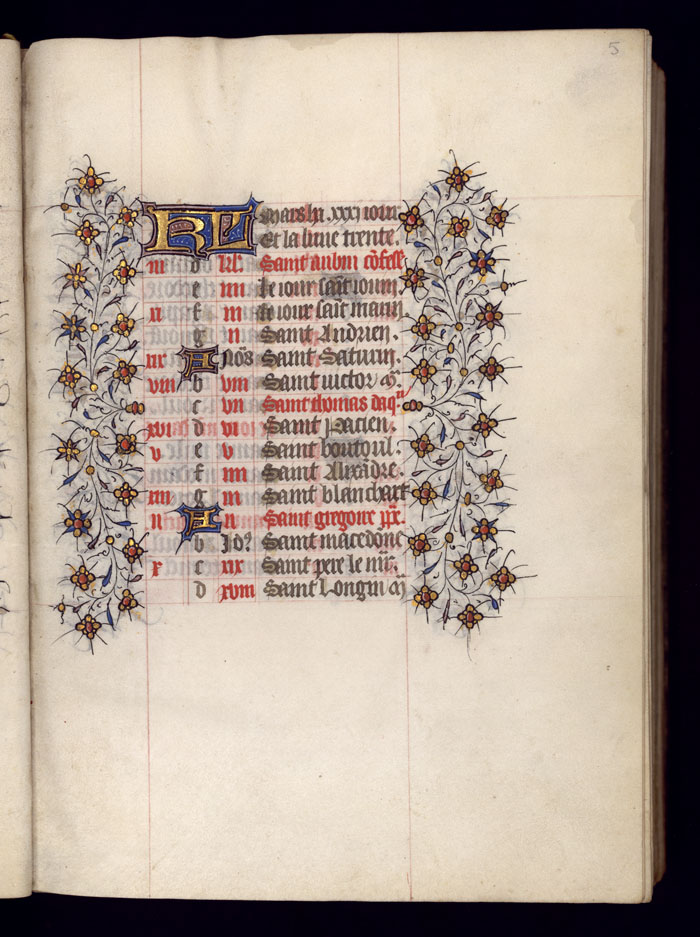 5
KL Mars ha .xxxi iours.
Et la lune trente.
iii d kl. Saint aubin cōfess
e iiii le iour sait iouin.
xi f iii le iour sait marin.
g ii Saint Andrien.
xix A nōs Saint Saturin.
viii b viii Saint victor m.
c vii Saint thomas daq
xvi d vi Saint pacien.
v e v Saint boutoul.
f iiii Saint Alixādre.
xiii g iii Saint blanchart
ii A ii Saint gregoire pp.
b Id? Saint macedone
x c xix Saint pere le m.
d xviii Saint Longin m